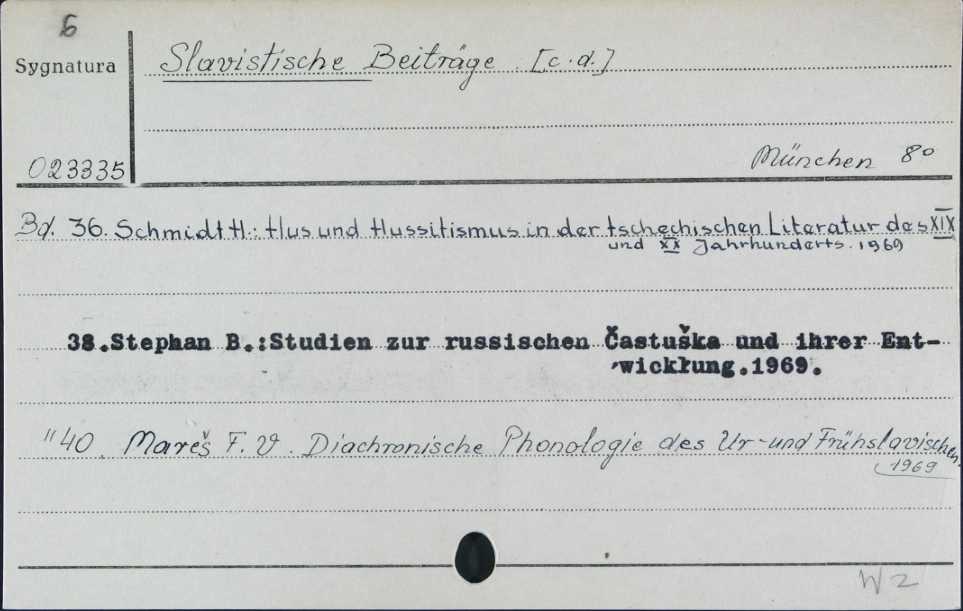 6
Sygnatura
Slavistische Beiträge [c.d.]
023335
München 8°
Bd. 36. Schmidt H.: Hus und Hussitismus in der tschechischen Literatur des XIX
und XX Jahrhunderts. 1969
38.Stephan B.:Studien zur russischen Častuška und ihrer Ent-
wickłung.1969.
"40. Mareš F. V. Diachronische Phonologie des Ur- und Frühslavischen.
1969
W2